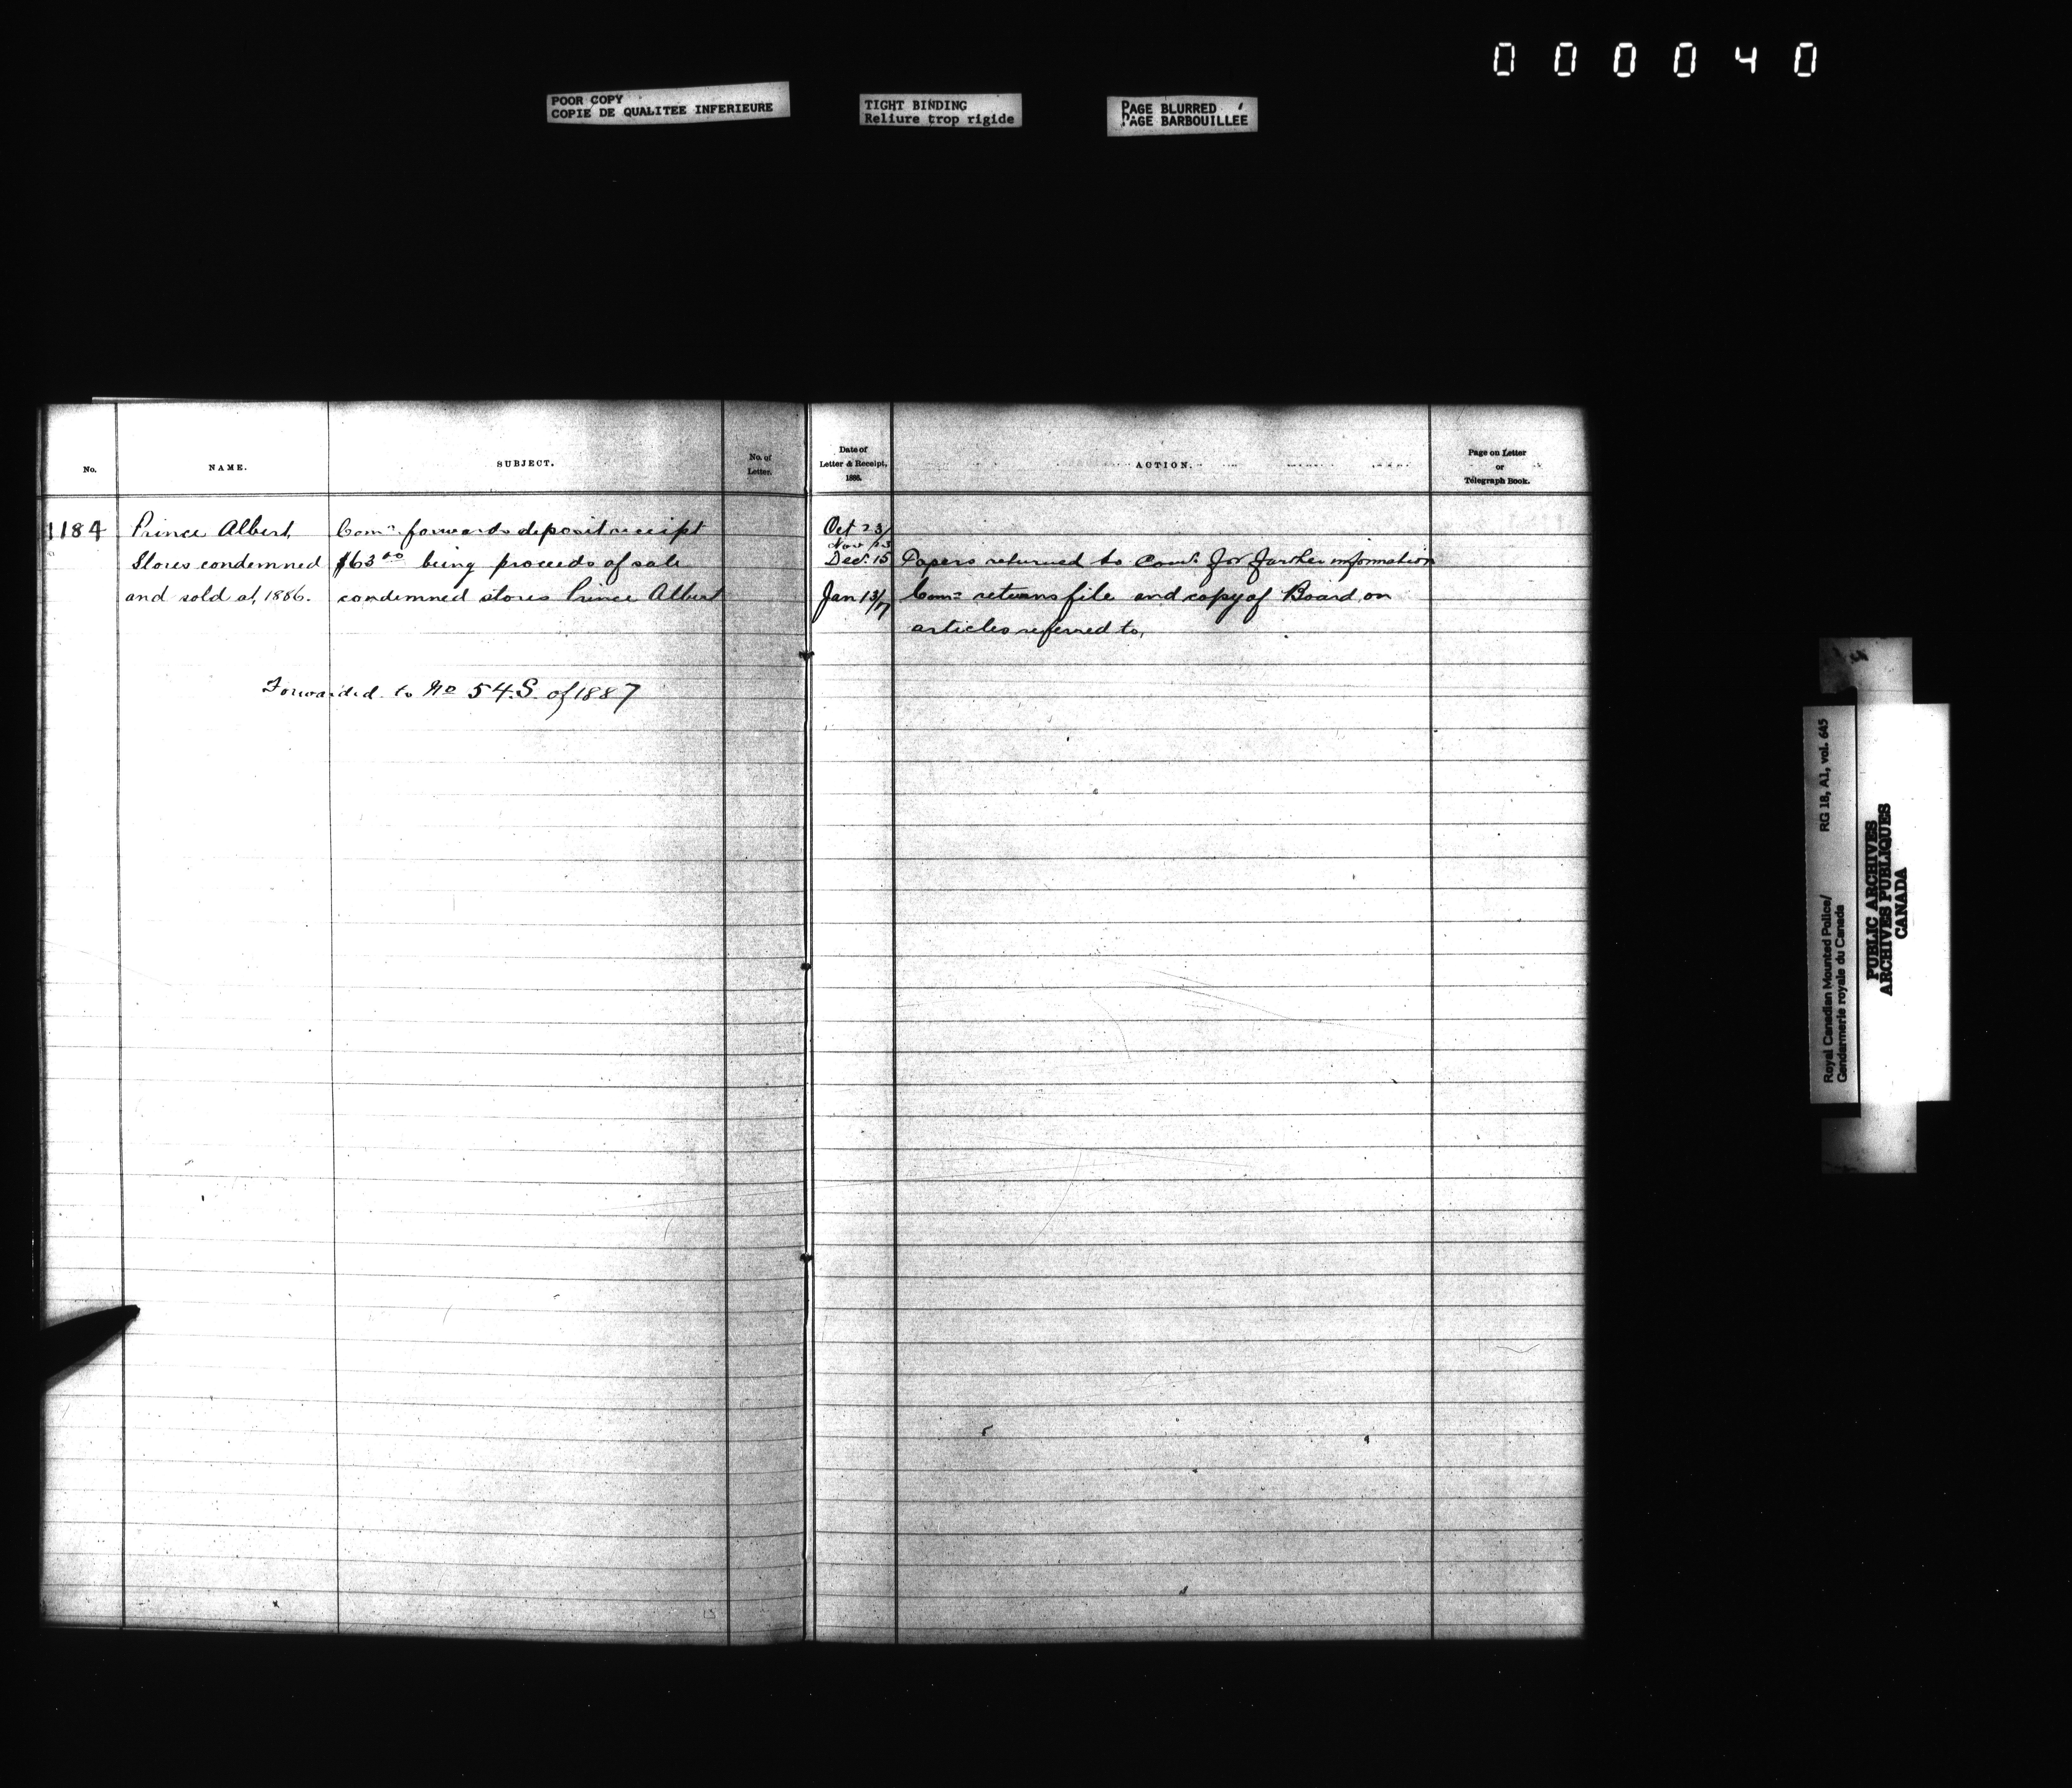 000040
POOR COPY
COPIE DE QUALITEE INFERIEURE
TIGHT BINDING
Reliure trop rigide
PAGE BLURRED
PAGE BARBOUILLEE
No.
NAME.
SUBJECT.
No. of
Letter.
Date of
Letter & Receipt,
1886.
ACTION.
Page on Letter
or
Telegraph Book.
1184
Prince Albert,
Stores condemned
and sold at, 1886.
Comr forwards deposit receipt
$63.00 being proceeds of sale
condemned stores Prince Albert
Oct 23/
Nov 23
Dec. 15 Papers returned to Comr. for further information
Jan 13/7 Comr returns file and copy of Board on
articles referred to,
Forwarded to No 54.S. of 1887
Royal Canadian Mounted Police/ RG 18, A1, vol. 645
Gendarmerie royale du Canada
PUBLIC ARCHIVES
ARCHIVES PUBLIQUES
CANADA